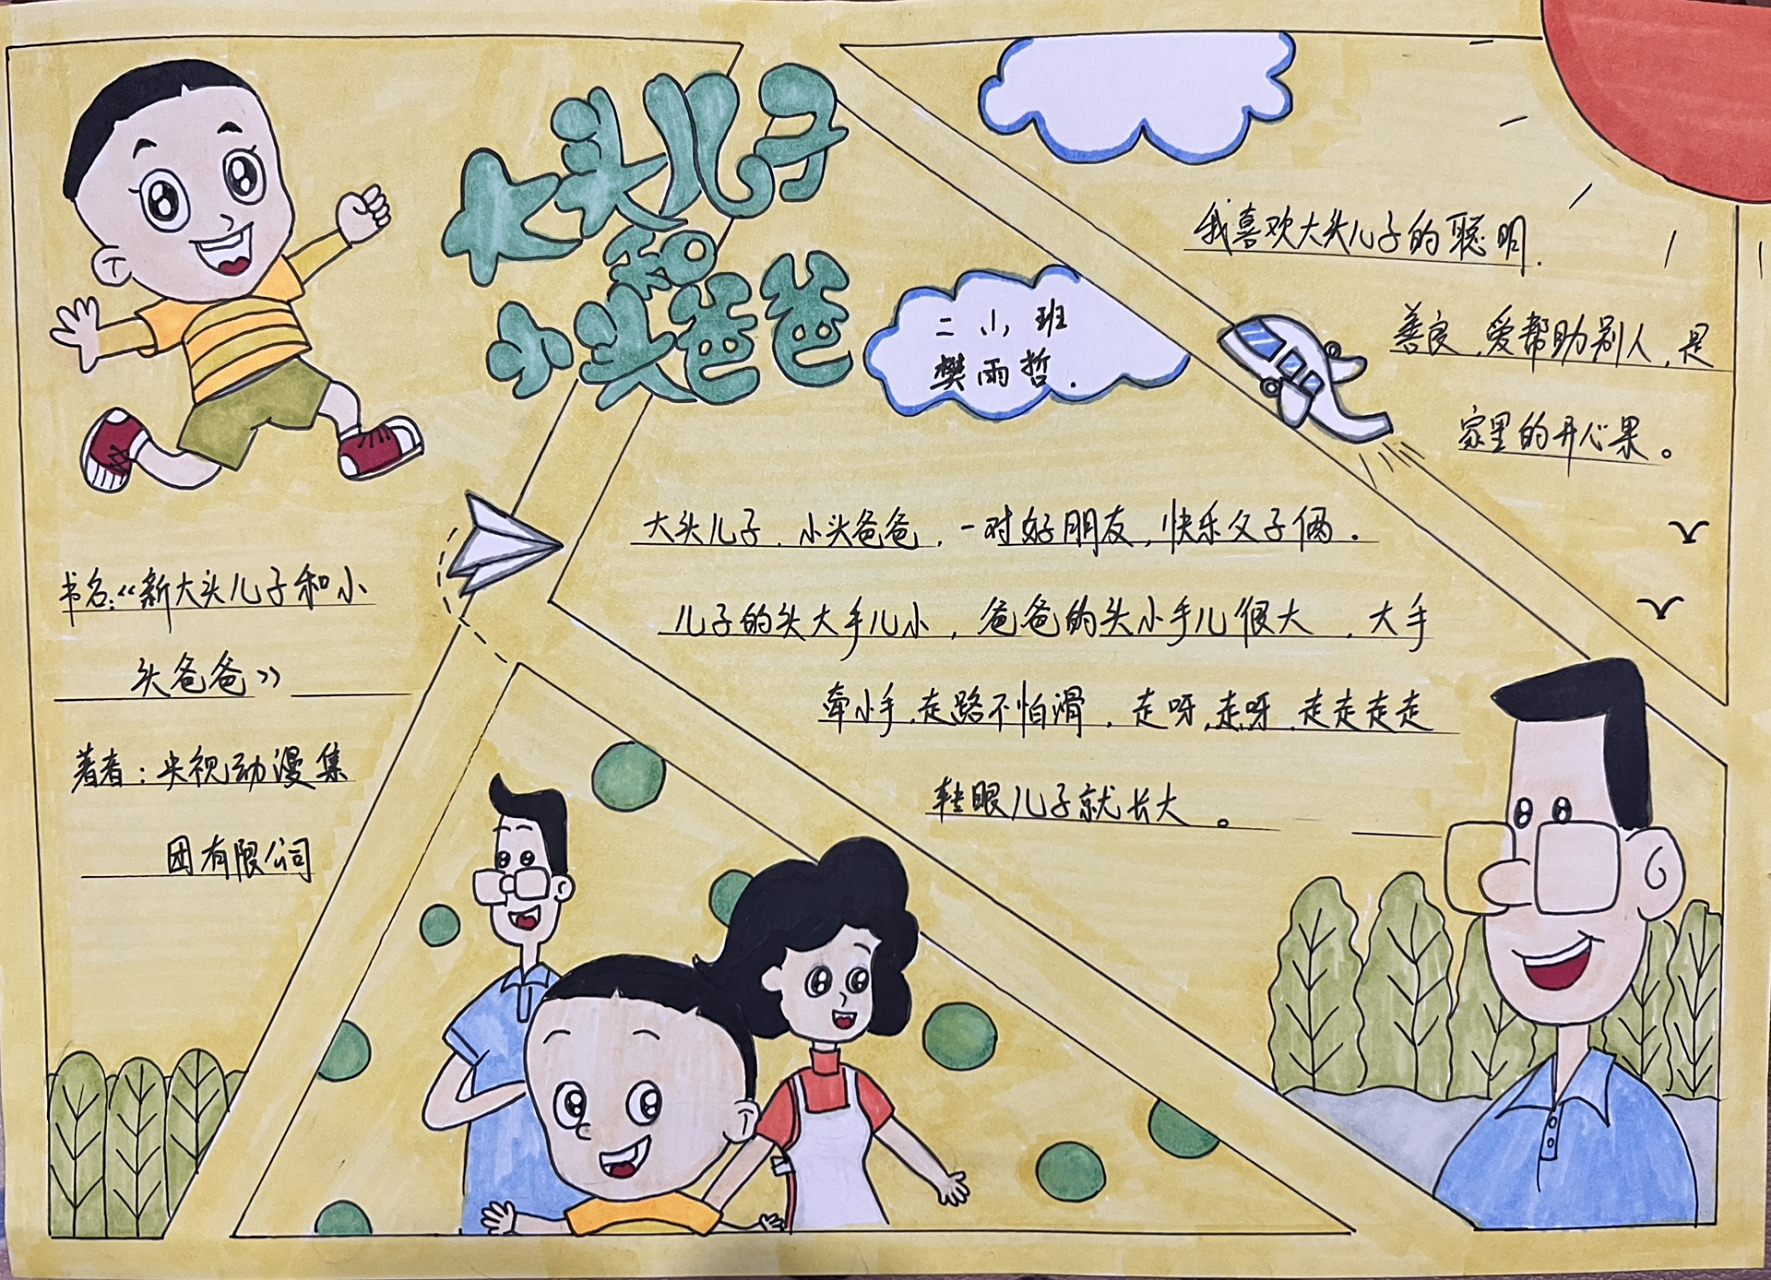 大头儿子
和
小头爸爸
二小班
樊雨哲.
我喜欢大头儿子的聪明.
善良,爱帮助别人,是
家里的开心果。
大头儿子.小头爸爸,一对好朋友,快乐父子俩.
儿子的头大手儿小,爸爸的头小手儿很大,大手
牵小手,走路不怕滑,走呀,走呀,走走走走
转眼儿子就长大。
书名:《新大头儿子和小
头爸爸》
著者:央视动漫集
团有限公司